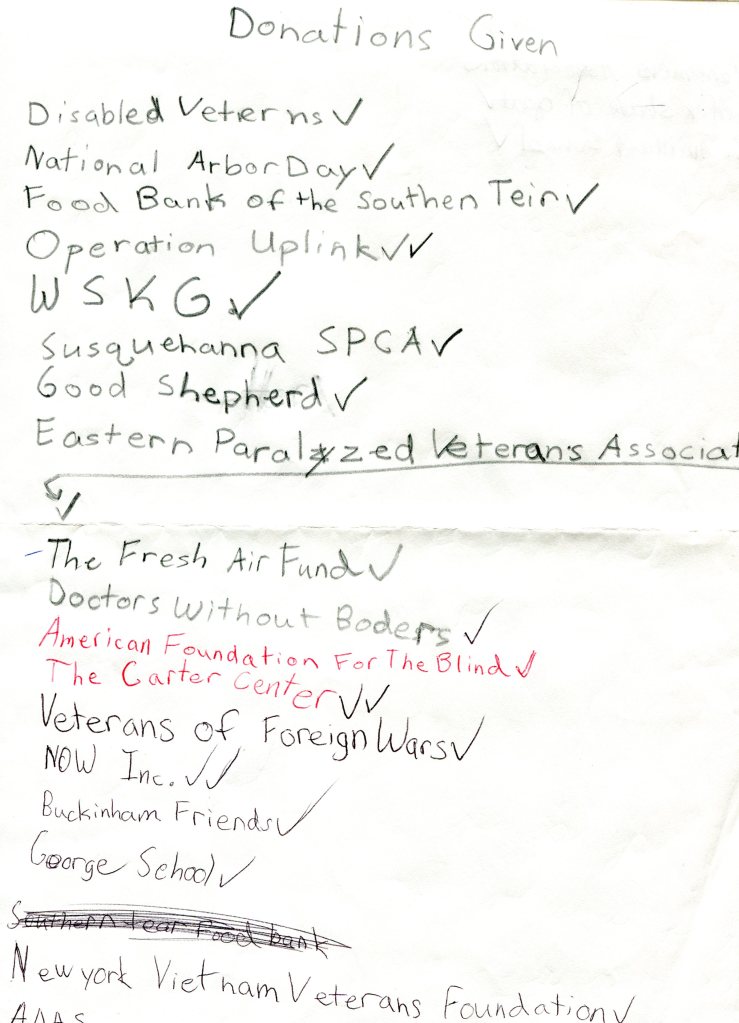 Donations Given
Disabled Veterns ✓
National Arbor Day ✓
Food Bank of the Southen Teir ✓
Operation Uplink ✓✓
WSKG ✓
Susquehanna SPCA ✓
Good Shepherd ✓
Eastern Paralyzed Veterans Associat
✓
The Fresh Air Fund ✓
Doctors Without Boders ✓
American Foundation For The Blind ✓
The Carter Center ✓✓
Veterans of Foreign Wars ✓
NOW Inc. ✓✓
Buckinham Friends ✓
George School ✓
Southern tear Food bank
New york Vietnam Veterans Foundation ✓